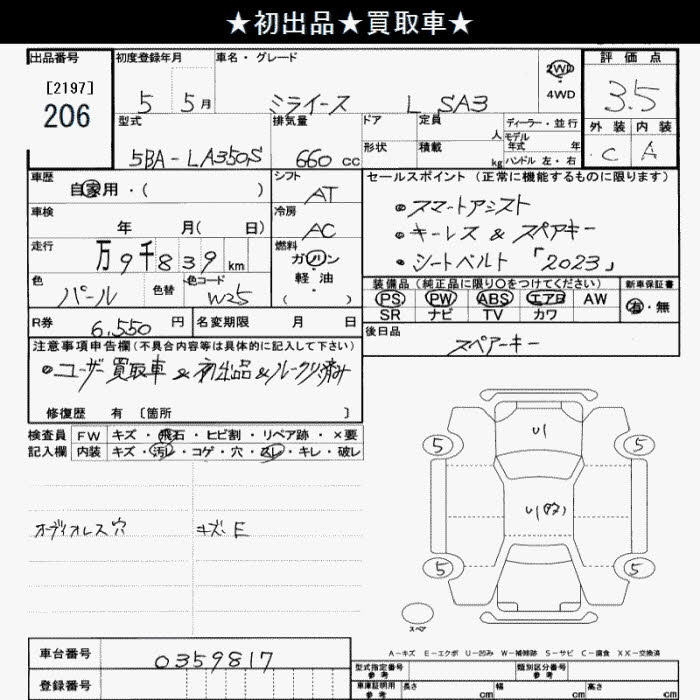 ★初出品★買取車★
出品番号
[2197]
206
初度登録年月 5 5月
車名・グレード ミライース L SA3
2WD
4WD
評価点
3.5
外装 内装
C A
型式 5BA-LA350S
排気量 660 cc
ドア
形状
定員 人
積載 kg
ディーラー・並行
モデル年式 年
ハンドル 左・右
車歴 自家用・( )
シフト AT
車検 年 月( 日)
冷房 AC
走行 万9千839 km
燃料 ガソリン・軽油・( )
色 パール 色替
色コード W25
R券 6,550 円
名変期限 月 日
セールスポイント (正常に機能するものに限ります)
・スマートアシスト
・キーレス & スペアキー
・シートベルト「2023」
装備品 (純正品に限り○をつけてください)
PS PW ABS エアB AW
SR ナビ TV カワ
新車保証書
有・無
後日品
スペアーキー
注意事項申告欄 (不具合内容等は具体的に記入して下さい)
・ユーザー買取車 & 初出品 & ルークリ済み
修復歴 有 [箇所 ]
検査員 FW キズ・飛石・ヒビ割・リペア跡・×要
記入欄 内装 キズ・汚レ・コゲ・穴・スレ・キレ・破レ
オーディオレス穴
キズ、E
U1
5 5
5 5
スペア
A-キズ E-エクボ U-凹み W-補修跡 S-サビ C-腐食 XX-交換済
車台番号 0359817
登録番号
型式指定番号 参考
類別区分番号 参考
車庫証明用 参考
長さ cm
幅 cm
高さ cm